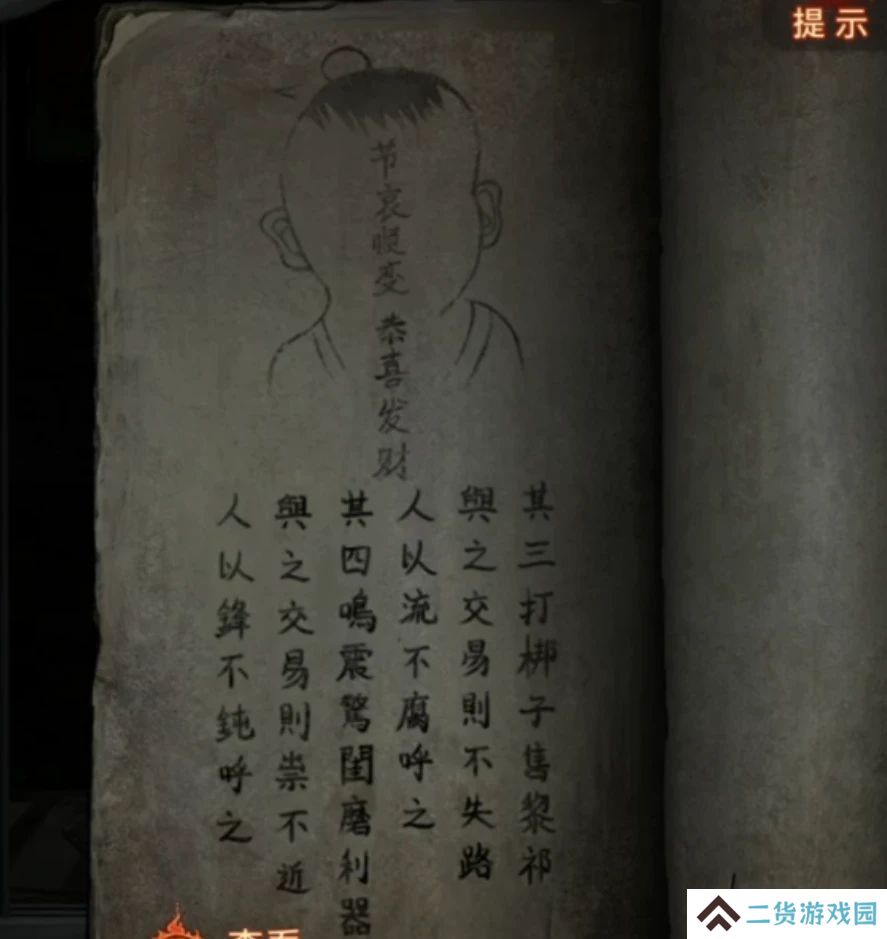 提示
节哀顺变 恭喜发财
其三打梆子售黎祁
與之交易則不失路
人以流不腐呼之
其四鳴震驚閨磨利器
與之交易則祟不近
人以鋒不鈍呼之
查看
二货游戏园